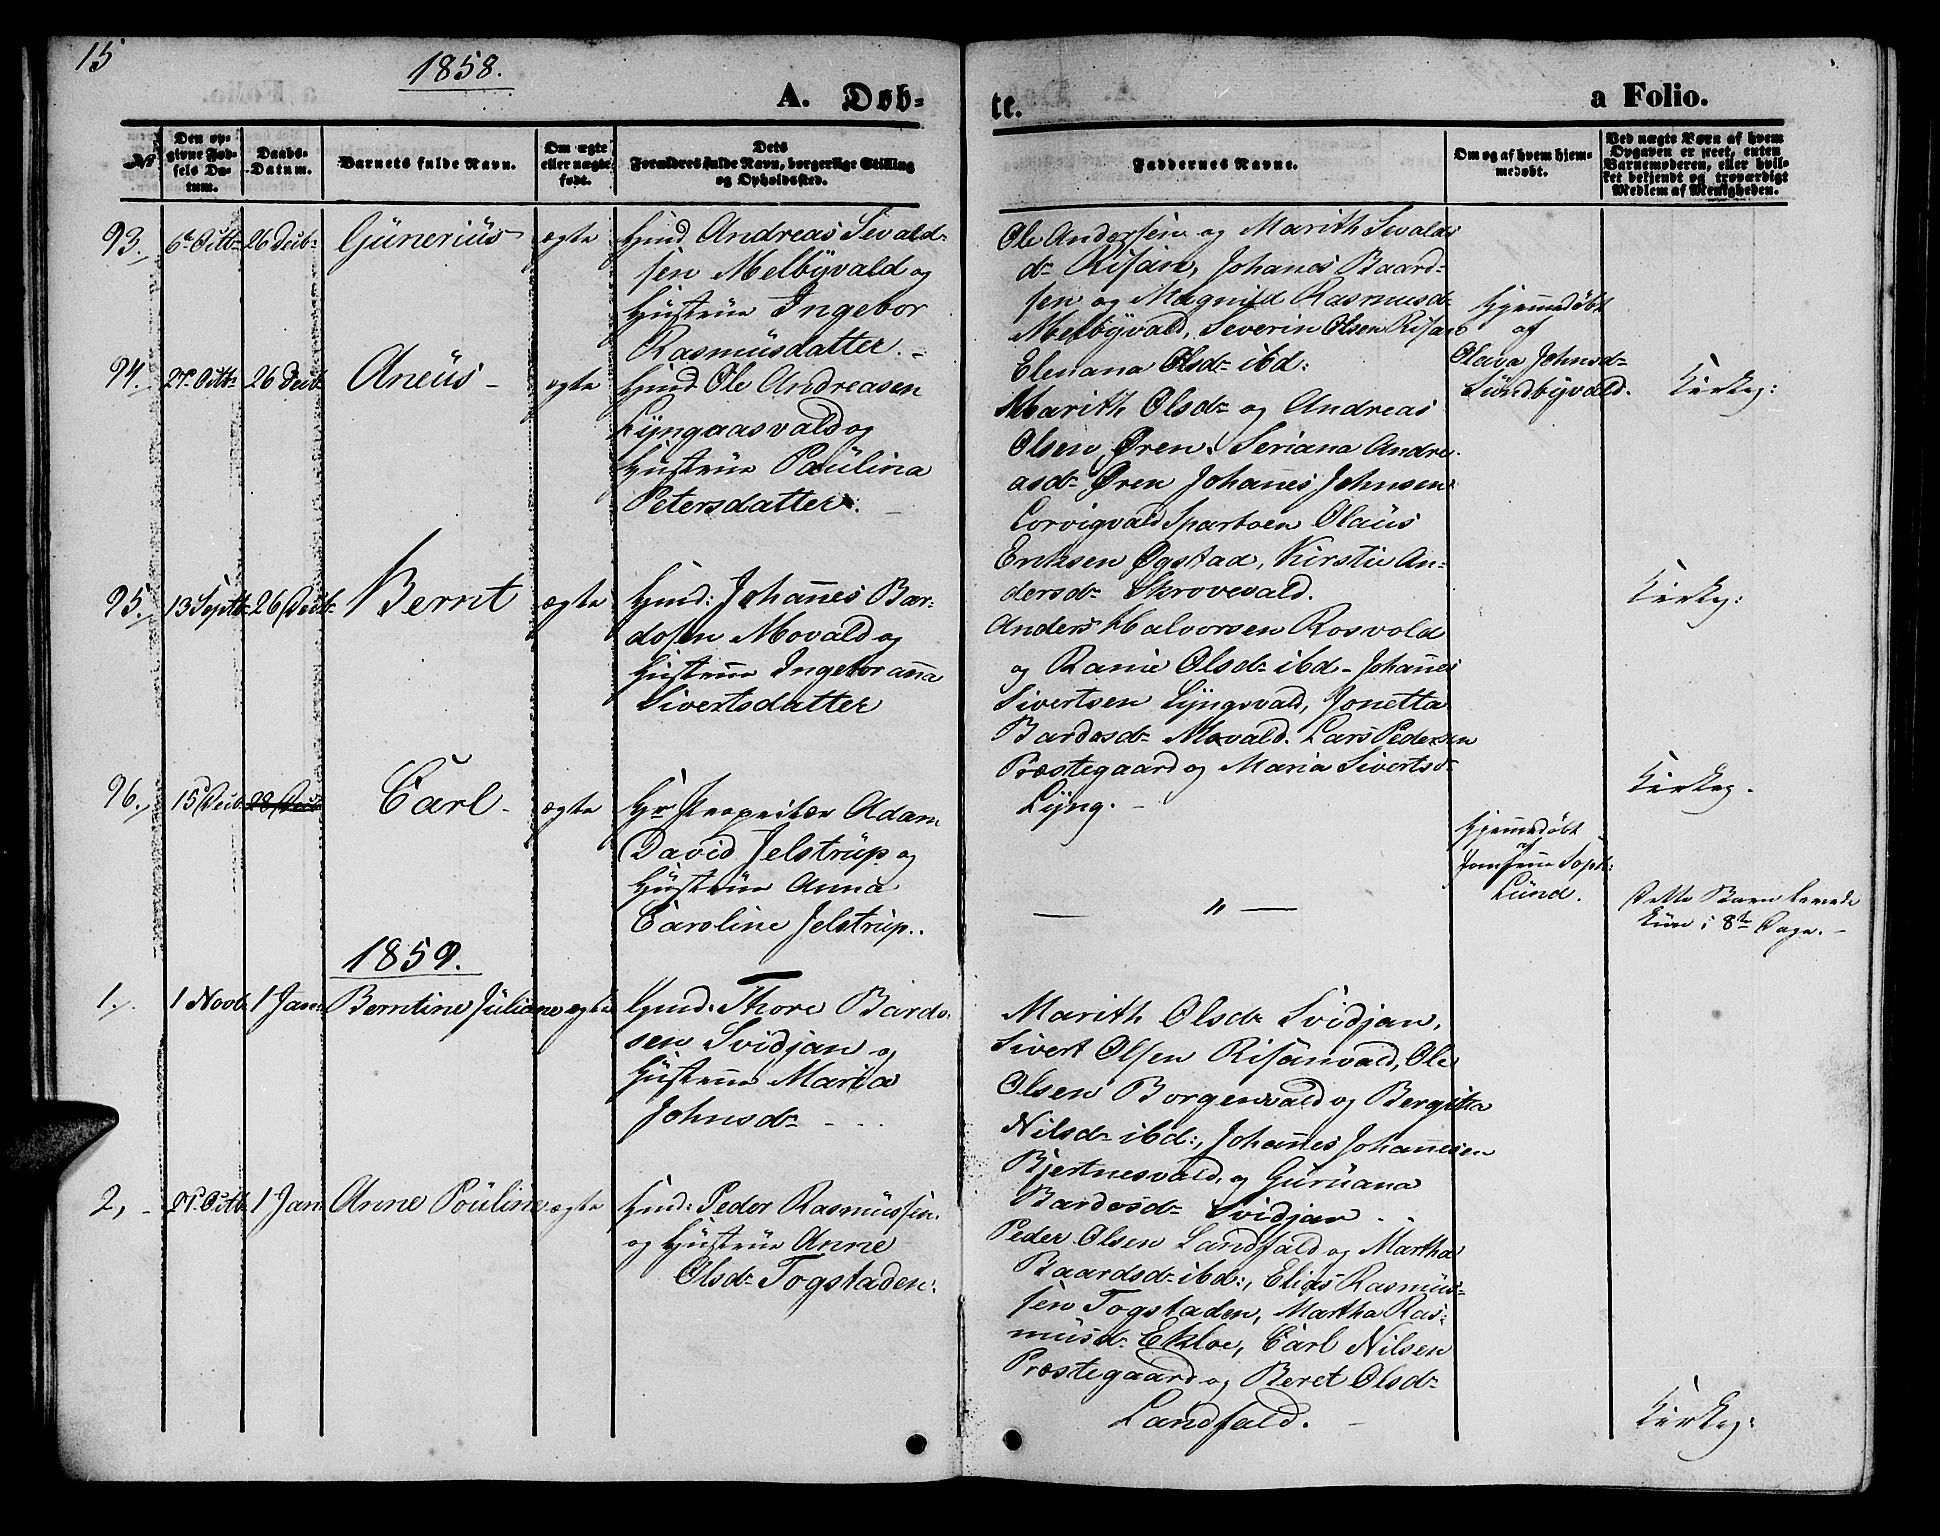 15
1858.
A. Døb-
Nº
Den op-
givne Fød-
sels Da-
tum.
Daabs-
Datum.
Barnets fulde Navn.
Om ægte
eller uægte
født.
Dets
Forældres fulde Navn, borgerlige Stilling
og Opholdssted.
93.
6te Octb
26 Decb
Günerius
ægte
Gmd Andreas Sevald-
sen Melbyvald og
Hustrue Ingebor
Rasmusdatter.
94.
26 Decb
Aneus
ægte
Gmd Ole Andreasen
Lyngaasvald og
Hustrue Paulina
Petersdatter.
95.
13 Septb
26 Decb
Bernt
ægte
Gmd: Johannes Bar-
dosen Movald og
Hustrue Ingeboranna
Sivertsdatter
96.
15 Decb
28 Decb
Carl
ægte
Hr Proprietær Adam
David Jelstrup og
Hustrue Anna
Caroline Jelstrup.
1859.
1.
1 Novb
1 Jan
Berntine Juliane
ægte
Gmd: Thore Bardo-
sen Svidjan og
Hustrue Maria
Johnsd
2,
1 Jan
Anne Pouline
ægte
Gmd: Peder Rasmussen
og Hustrue Anne
Olsd Togstaden.
te.
a Folio.
Faddernes Navne.
Om og af hvem hjem-
medøbt.
Ved uægte Børn af hvem
Opgaven er skeet, enten
Barnemoderen, eller hvil-
ket bekjendt og troværdigt
Medlem af Menigheden.
Ole Andersen og Marith Sevalds
d Risan, Johanes Baard-
sen og Magnild Rasmusd
Melbyvald, Severin Olsen Risan
Elenana Olsd ibd:
Hjemmedøbt
af
Olava Johnsd
Lundbyvald.
Kirkeg:
Marith Olsd og Andreas
Olsen Øren. Seriana Andre-
asd Øren Johanes Johnsen
Corvigvald Olaus
Eriksen Øgstad, Kirstie An-
dersd Skrovevald.
Kirkeg:
Anders Halvorsen Rosvold
og Ranie Olsd ibd - Johannes
Sivertsen Lyngsvald, Jonetta
Bardosd Movald. Lars Pedersen
Præstegaard og Maria Sivertsd
Lyng.
Kirkeg.
— " —
Hjemmedøbt
af
Jomfrue Soph:
Lund.
Dette Barn levede
kun i 8te Dage.
Marith Olsd Svidjan,
Sivert Olsen Risanvald, Ole
Olsen Borgenvald og Bergitta
Nilsd ibd:, Johannes Johannesen
Bjertnesvald, og Guruana
Bardosd Svidjan
Peder Olsen Landfald og Martha
Baardsd ibd:, Elias Rasmus-
sen Togstaden, Martha Ras-
musd Ekloe, Carl Nilsen
Præstegaard og Beret Olsd
Landfald.
Kirkeg: